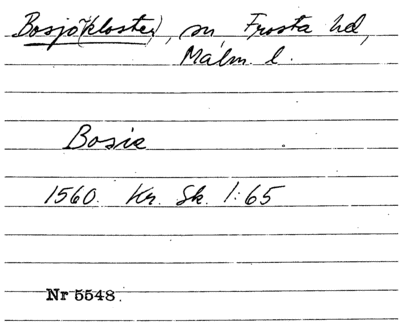 Bosjö(kloster), sn, Frosta hd,
Malm. l.
Bosie
1560. Kr. Sk. 1:65
Nr 5548.